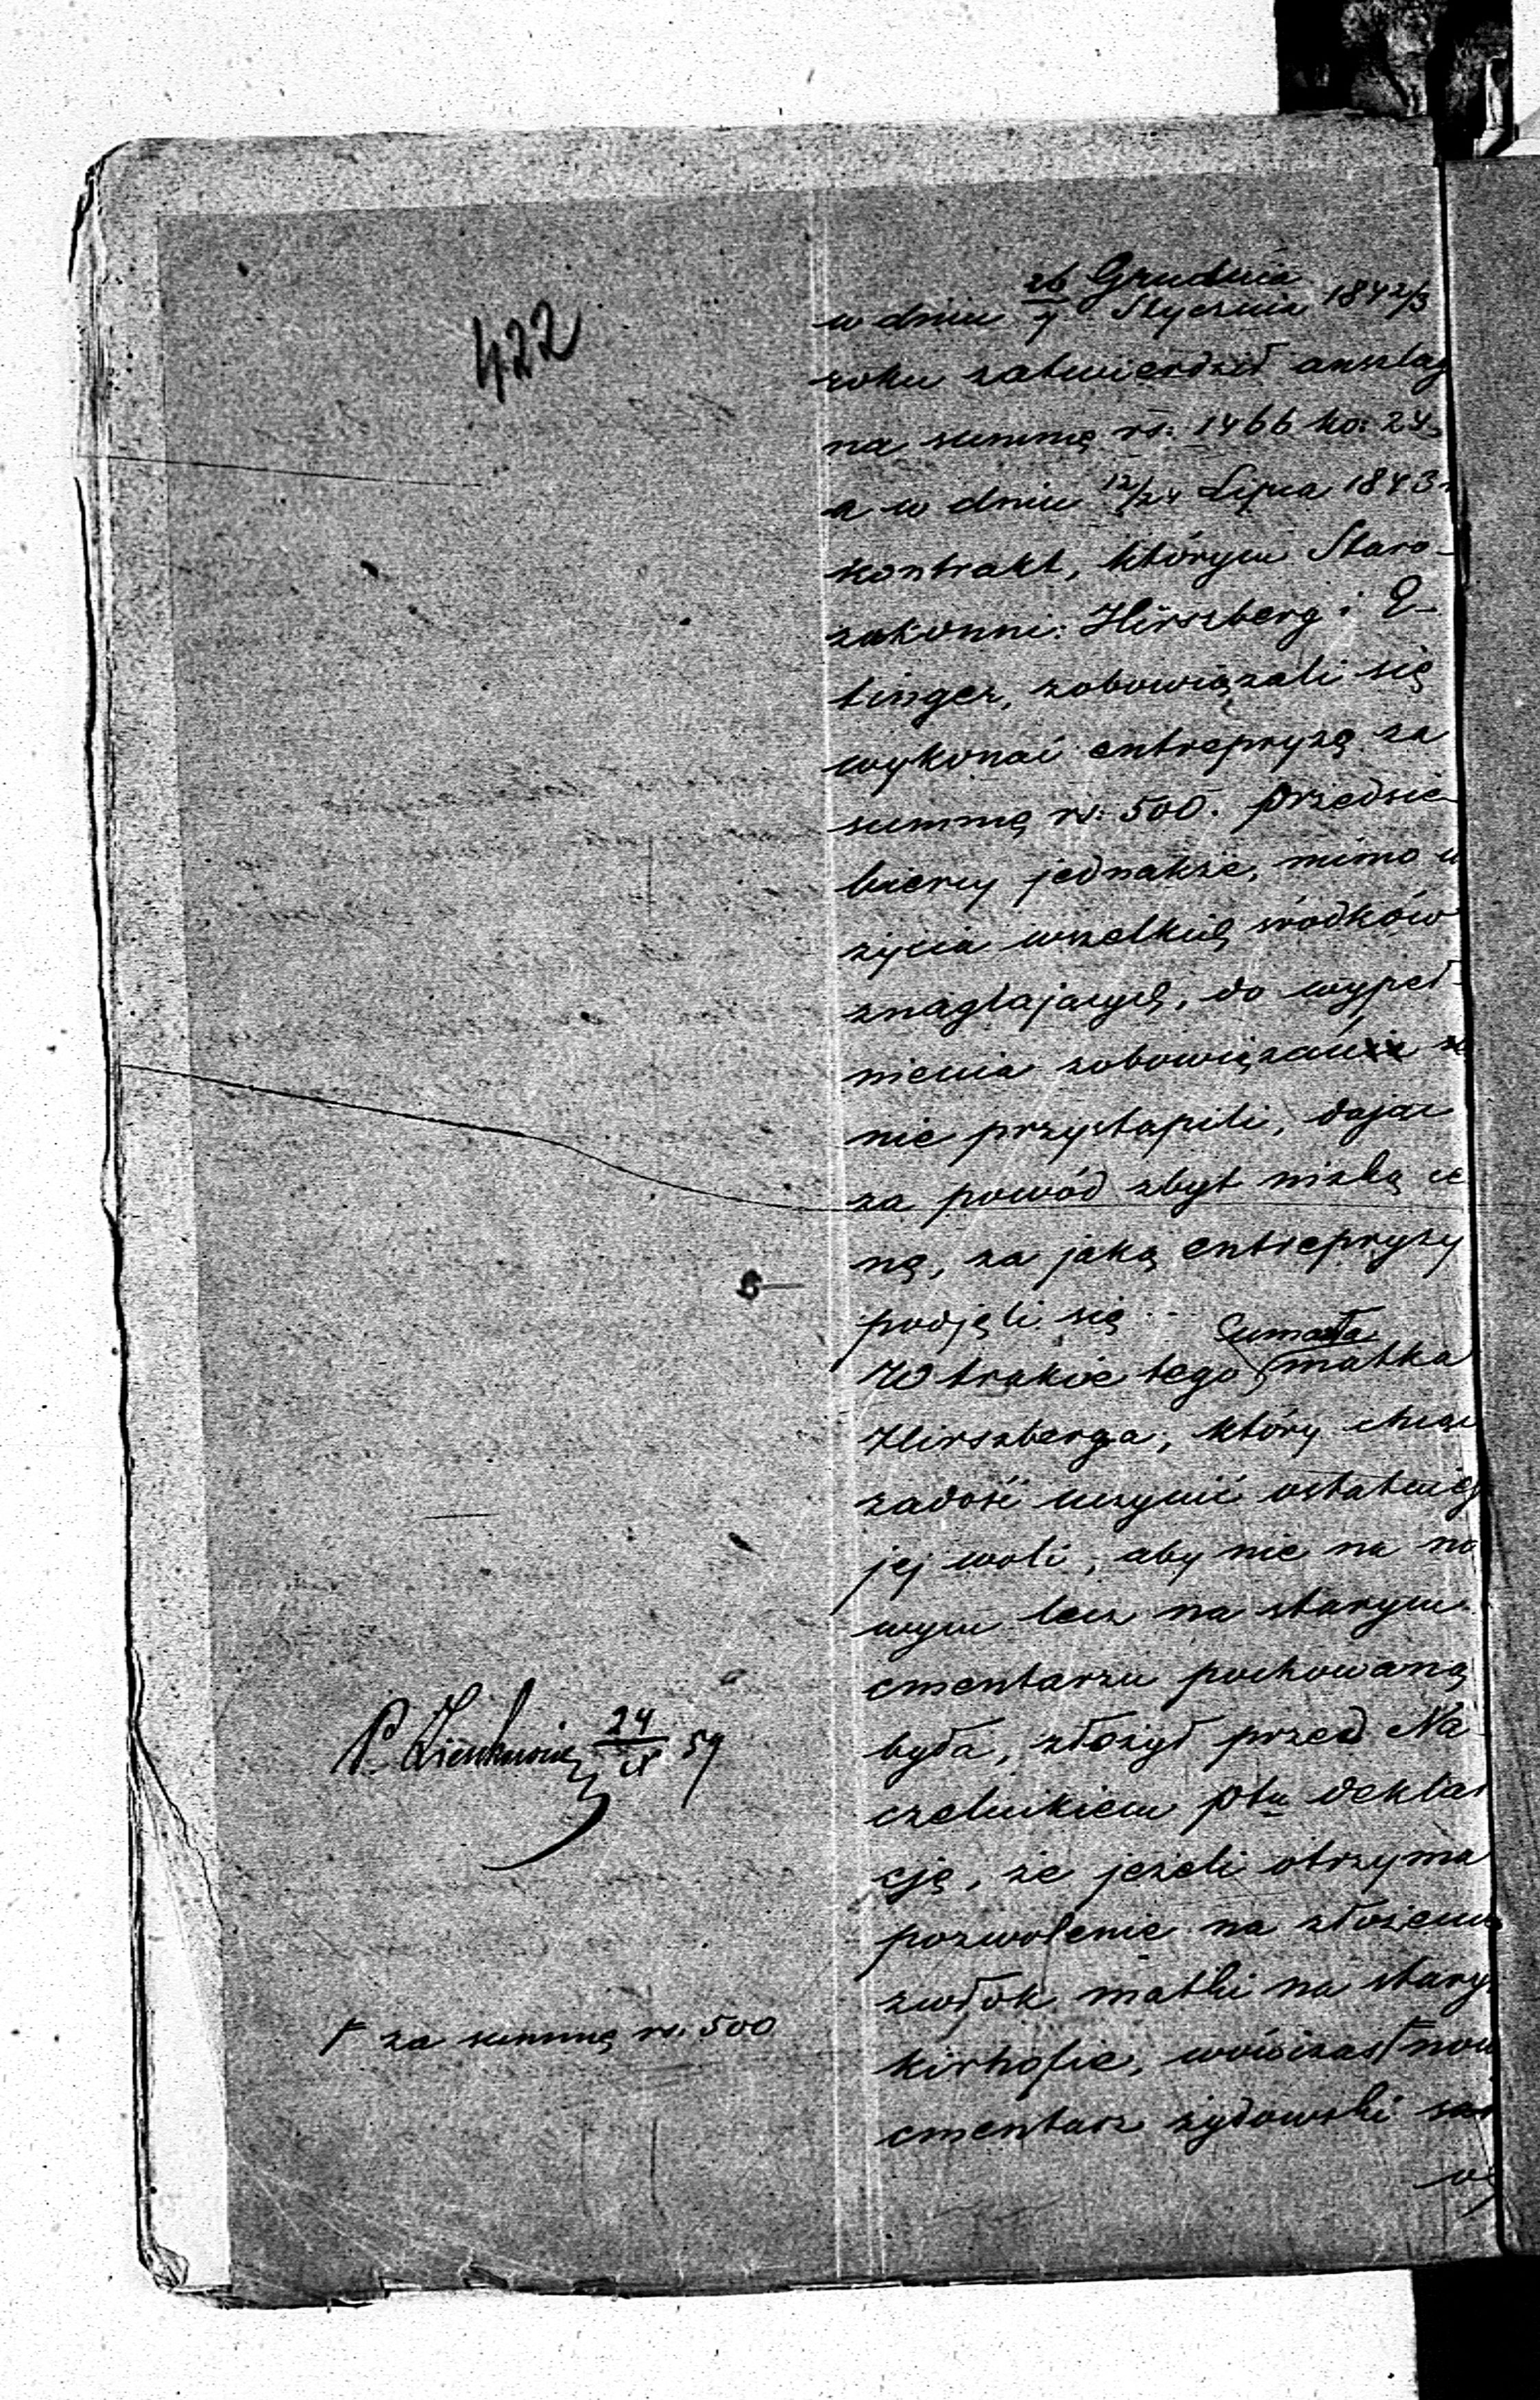 422
26 Grudnia
w dniu 7 Stycznia 1842/3
roku zatwierdził anszlag
na summę rs: 1466 ko: 24.
a w dniu 12/24 Lipca 1843 r
kontrakt, którym Staro-
zakonni: Hirszberg i E-
tinger, zobowiązali się
wykonać entrepryzę za
summę rs: 500. Przedsię-
biercy jednakże, mimo u
życia wszelkich środków
znaglających, do wypeł-
nienia zobowiązań
nie przystąpili, dając
za powód zbyt nizką ce
nę, za jaką entrepryzy
podjęli się.
Umarła
W trakcie tego matka
Hirszberga, który chcąc
zadość uczynić ostatniej
jej woli, aby nie na no
wym lecz na starym
cmentarzu pochowaną
była, złożył przed Na-
czelnikiem Ptu deklar
cję, że jeżeli otrzyma
pozwolenie na złożenie
zwłok matki na stary
kirhofie, wówczas now
cmentarz żydowski
P. 24/IX 59
za summę rs. 500